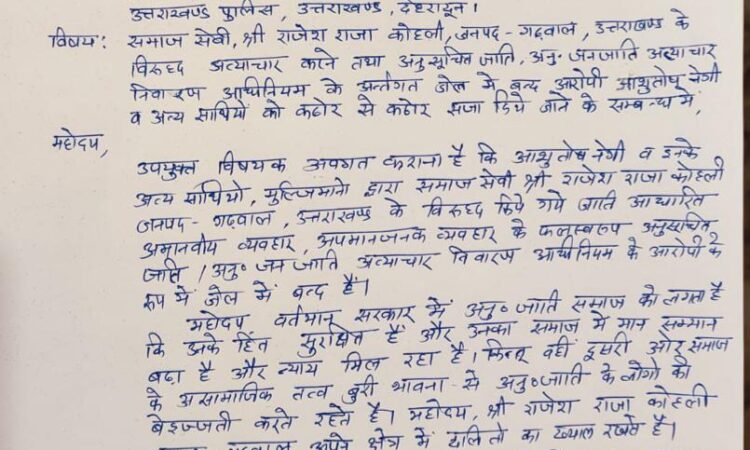 उत्तराखण्ड पुलिस, उत्तराखण्ड, देहरादून।
विषय: समाज सेवी, श्री राजेश राजा कोहली, जनपद - गढवाल, उत्तराखण्ड के
विरुध्द अत्याचार करने तथा अनुसूचित जाति, अनु॰ जनजाति अत्याचार
निवारण अधिनियम के अर्न्तगत जेल में बन्द आरोपी आशुतोष नेगी
व अन्य साथियों को कठोर से कठोर सजा दिये जाने के सम्बन्ध में,
महोदय,
उपयुक्त विषयक अवगत कराना है कि आशुतोष नेगी व इनके
अन्य साथियो, मुल्जिमानो द्वारा समाज सेवी श्री राजेश राजा कोहली
जनपद - गढवाल, उत्तराखण्ड के विरुध्द किये गये जाति आधारित
अमानवीय व्यवहार, अपमानजनक व्यवहार के फलस्वरूप अनुसूचित
जाति / अनु॰ जन जाति अत्याचार निवारण अधिनियम के आरोपी के
रूप में जेल में बन्द हैं।
महोदय वर्तमान सरकार में अनु॰ जाति समाज को लगता है
कि उनके हित सुरक्षित हैं और उनका समाज में मान सम्मान
बढा है और न्याय मिल रहा है। किन्तु वहीं दूसरी ओर समाज
के असामाजिक तत्व बुरी भावना से अनु॰ जाति के लोगो की
बेइज्जती करते रहते है। महोदय, श्री राजेश राजा कोहली
गढवाल अपने क्षेत्र में दलितो का ख्याल रखते है।